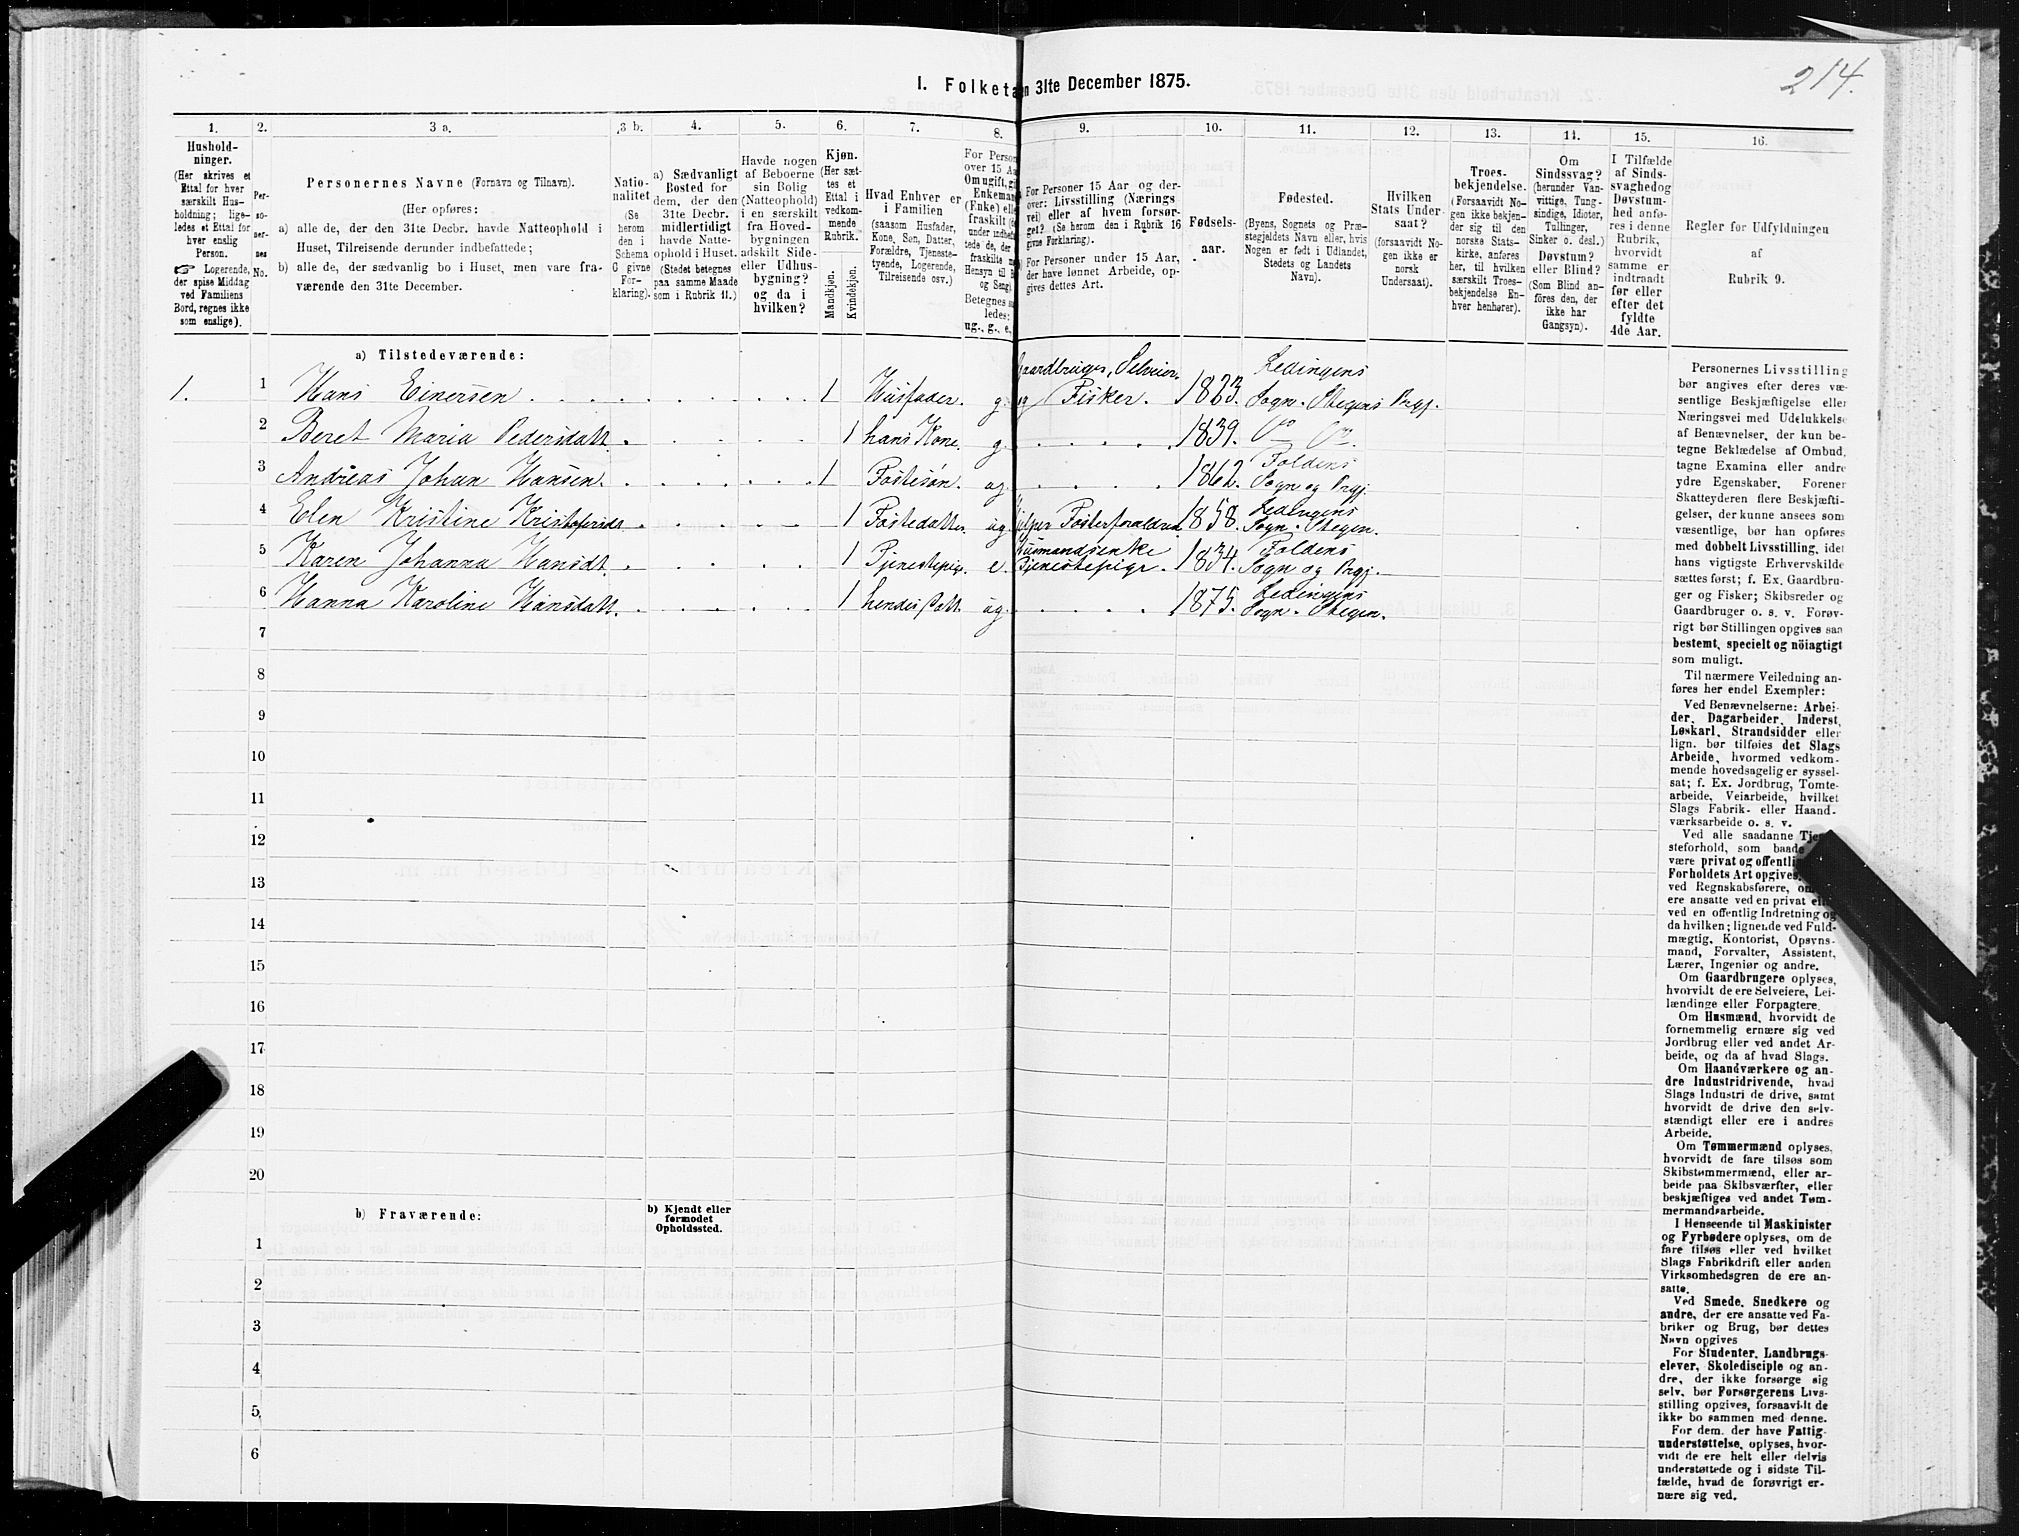 214.
I. Folketa n 31te December 1875.
1.
Hushold-
ninger.
(Her skrives et
Ettal for hver
særskilt Hus-
holdning; lige-
ledes et Ettal for
hver enslig
Person.
☞ Logerende,
der spise Middag
ved Familiens
Bord, regnes ikke
som enslige).
2.
Per-
so-
ner-
nes
No.
3 a.
Personernes Navne (Fornavn og Tilnavn).
(Her opføres:
a) alle de, der den 31te Decbr. havde Natteophold i
Huset, Tilreisende derunder indbefattede;
b) alle de, der sædvanlig bo i Huset, men vare fra-
værende den 31te December.
3 b.
Natio-
nalitet
(Se
herom
den i
Schema
G givne
For-
klaring).
4.
a) Sædvanligt
Bosted for
dem, der den
31te Decbr.
midlertidigt
havde Natte-
ophold i Huset.
(Stedet betegnes
paa samme Maade
som i Rubrik 11.)
5.
Havde nogen
af Beboerne
sin Bolig
(Natteophold)
i en særskilt
fra Hoved-
bygningen
adskilt Side-
eller Udhus-
bygning?
og da i
hvilken?
6.
Kjøn.
(Her sæt-
tes et
Ettal i
vedkom-
mende
Rubrik.
Mandkjøn.
Kvindekjøn.
7.
Hvad Enhver er
i Familien
(saasom Husfader,
Kone, Søn, Datter,
Forældre, Tjeneste-
tyende, Logerende,
Tilreisende osv.)
8.
For Person
over 15 Aa
Om ugift, gi
Enkemand
(Enke) elle
fraskilt
ug., g., e.,
9.
For Personer 15 Aar og der-
over: Livsstilling (Nærings
vei) eller af hvem forsør-
get? (Se herom den i Rubrik 16
givne Forklaring).
For Personer under 15 Aar,
der have lønnet Arbeide, op-
gives dettes Art.
10.
Fødsels-
aar.
11.
Fødested.
(Byens, Sognets og Præ-
stegjeldets Navn eller, hvis
Nogen er født i Udlandet,
Stedets og Landets
Navn).
12.
Hvilken
Stats Under-
saat?
(forsaavidt No-
gen ikke er
norsk
Undersaat).
13.
Troes-
bekjendelse.
(Forsaavidt No-
gen ikke bekjen-
der sig til den
norske Stats-
kirke, anføres
her, til hvilken
særskilt Troes-
bekjendelse En-
hver henhører).
14.
Om
Sindssvag?
(herunder Van-
vittige, Tung-
sindige, Idioter,
Tullinger,
Sinker o. desl.)
Døvstum?
eller Blind?
(Som Blind an-
føres den, der
ikke har
Gangsyn).
15.
I Tilfælde
af Sinds-
svaghedog
Døvstum-
hed anfø-
res i denne
Rubrik,
hvorvidt
samme er
indtraadt
før eller
efter det
fyldte
4de Aar.
16.
Regler for Udfyldningen
af
Rubrik 9.
a) Tilstedeværende:
1. 1 Hans Einersen 1 Husfader. g. Gaardbruger, Selveier og Fisker. 1823. Ledingens Sogn. Stegens Prgj.
2 Beret Maria Pedersdatt. 1 hans Kone. g. 1839. Do Do
3 Andreas Johan Hansen. 1 Fostesøn. ug. 1862. Foldens Sogn og Prgj.
4 Elen Kristine Kristofersdt. 1 Fostedatter ug. hjelper Fosterforældrene 1858. Ledingens Sogn. Stegen.
5 Karen Johanna Hansdt. 1 Tjenestepige. e. Husmandsenke Tjenestepige. 1834. Foldens Sogn og Prgj.
6 Hanna Karoline Hansdatt. 1 hendes Datt. ug. 1875. Ledingens Sogn. Stegen.
7
8
9
10
11
12
13
14
15
16
17
18
19
20
b) Fraværende:
b) Kjendt eller
formodet
Opholdssted.
1
2
3
4
5
6
Personernes Livsstilling
bør angives efter deres væ-
sentlige Beskjæftigelse eller
Næringsvei med Udelukkelse
af Benævnelser, der kun be-
tegne Beklædelse af Ombud,
tagne Examina eller andre
ydre Egenskaber. Forener
Skatteyderen flere Beskjæfti-
gelser, der kunne ansees som
væsentlige, bør han opføres
med dobbelt Livsstilling, idet
hans vigtigste Erhvervskilde
sættes først; f. Ex. Gaardbru-
ger og Fisker; Skibsreder og
Gaardbruger o. s. v. Forøv-
rigt bør Stillingen opgives saa
bestemt, specielt og nöiagtigt
som muligt.
Til nærmere Veiledning an-
føres her endel Exempler:
Ved Benævnelserne: Arbei-
der, Dagarbeider, Inderst,
Løskarl, Strandsidder eller
lign. bør tilføies det Slags
Arbeide, hvormed vedkom-
mende hovedsagelig er syssel-
sat; f. Ex. Jordbrug, Tomte-
arbeide, Veiarbeide, hvilket
Slags Fabrik- eller Haand-
værksarbeide o. s. v.
Ved alle saadanne Tje
steforhold, som baade
være privat og offentli
Forholdets Art opgives,
ved Regnskabsførere, om
ere ansatte ved en privat el
ved en offentlig Indretning og
da hvilken; lignende ved Fuld-
mægtig, Kontorist, Opsyns-
mand, Forvalter, Assistent,
Lærer, Ingeniør og andre.
Om Gaardbrugere oplyses,
hvorvidt de ere Selveiere, Lei-
lændinge eller Forpagtere.
Om Husmænd, hvorvidt de
fornemmelig ernære sig ved
Jordbrug eller ved andet Ar-
beide, og da af hvad Slags.
Om Haandværkere og an-
dre Industridrivende, hvad
Slags Industri de drive, samt
hvorvidt de drive den selv-
stændigt eller ere i andres
Arbeide.
Om Tømmermænd oplyses,
hvorvidt de fare tilsøs som
Skibstømmermænd, eller ar-
beide paa Skibsværfter, eller
beskjæftiges ved andet Tøm-
mermandsarbeide.
I Henseende til Maskinister
og Fyrbødere oplyses, om de
fare tilsøs eller ved hvilket
Slags Fabrikdrift eller anden
Virksomhedsgren de ere an-
satte.
Ved Smede, Snedkere og
andre, der ere ansatte ved Fa-
briker og Brug, bør dettes
Navn opgives
For Studenter, Landbrugs-
elever, Skoledisciple og an-
dre, der ikke forsørge sig
selv, bør Forsørgerens Livs-
stilling opgives, forsaavidt de
ikke bo sammen med denne.
For dem, der have Fattig-
understøttelse, oplyses, hvor-
vidt de ere helt eller delvis
understøttede og i sidste Til-
fælde, hvad de forøvrigt er-
nære sig ved.